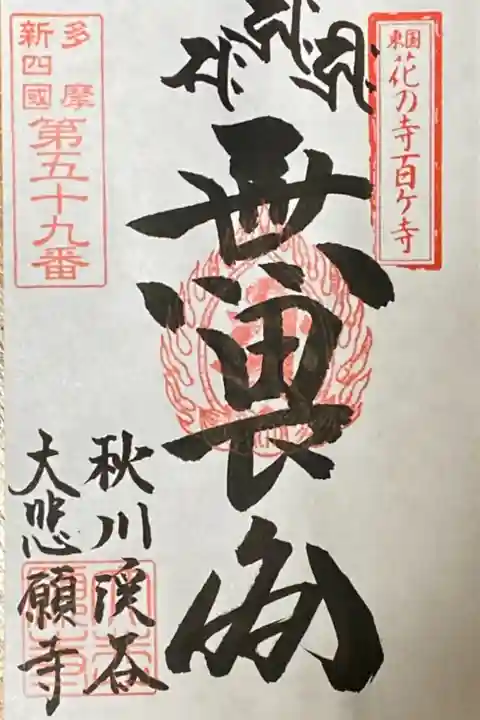 東国花の寺百ヶ寺
無畏閣
秋川渓谷
大悲願寺
多摩
新四國
第五十九番